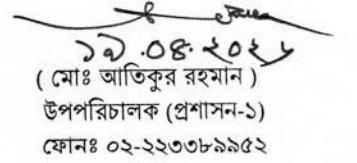 ১৯.০৪.২০২৬
( মোঃ আতিকুর রহমান )
উপপরিচালক (প্রশাসন-১)
ফোনঃ ০২-২২৩৩৮৯৯৫২